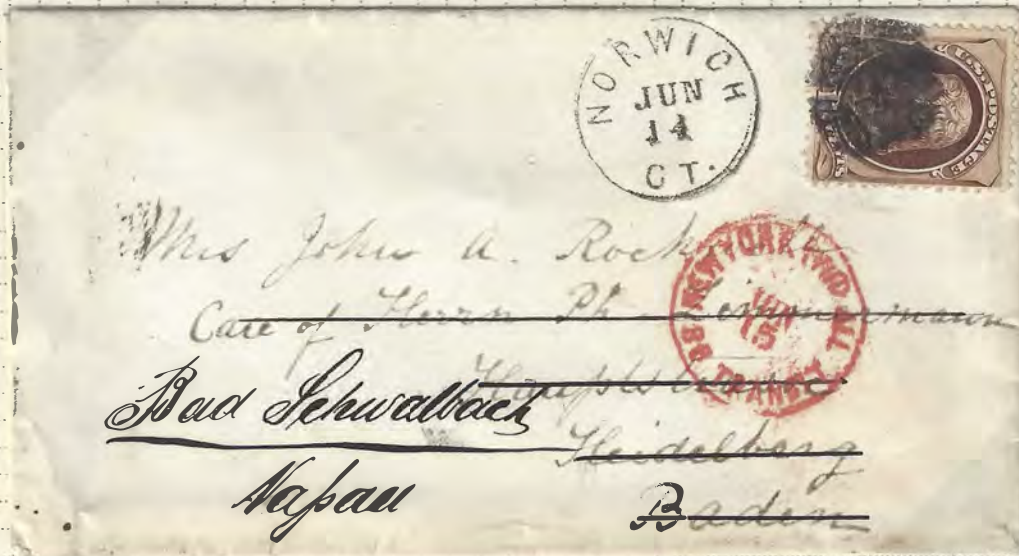 NORWICH
JUN
14
CT.
U.S. POSTAGE
NEW YORK PAID ALL
JUN
15
TRANSIT
Mrs John A.
Care of Herrn Ph. Zimmermann
Heidelberg
Baden
Bad Schwalbach
Naſsau